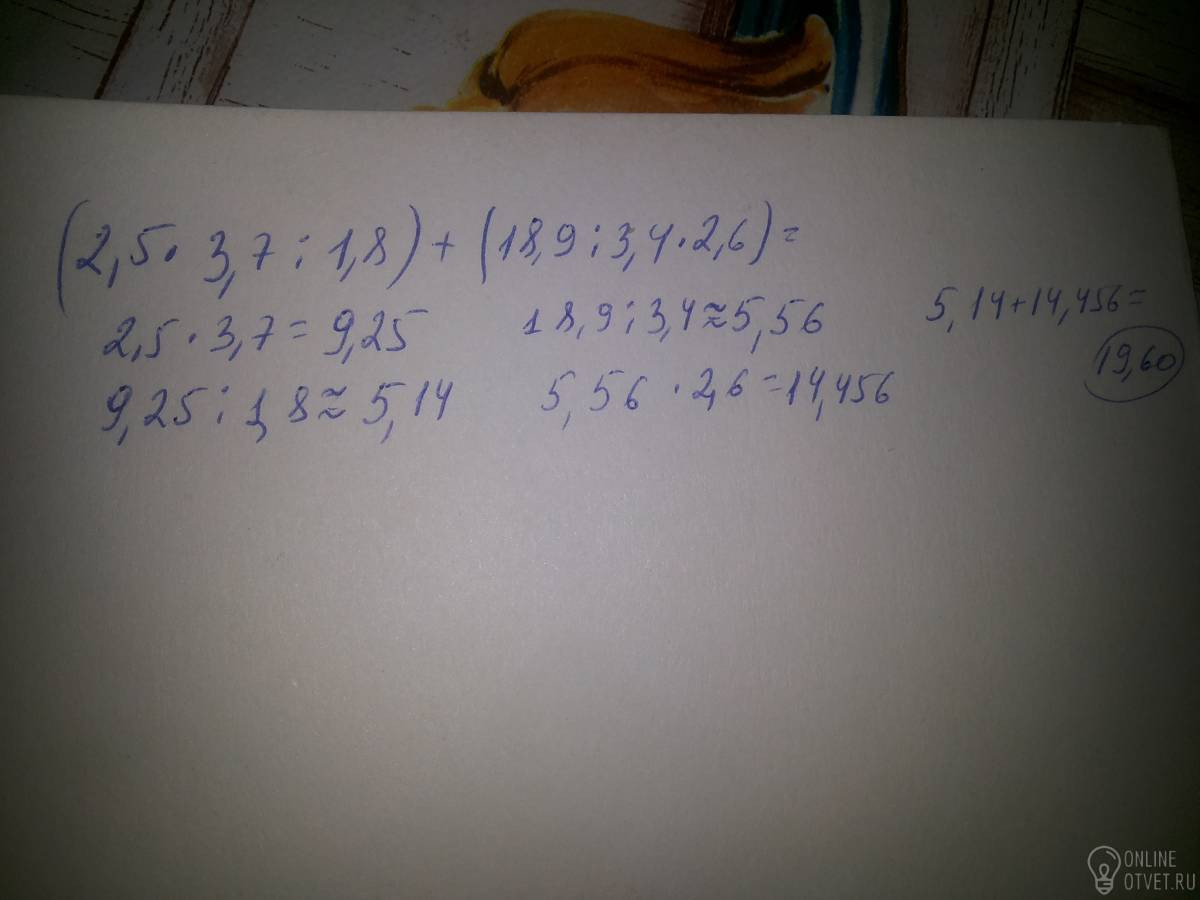 (2,5 · 3,7 : 1,8) + (18,9 : 3,4 · 2,6) =
2,5 · 3,7 = 9,25
9,25 : 1,8 ≈ 5,14
18,9 : 3,4 ≈ 5,56
5,56 · 2,6 = 14,456
5,14 + 14,456 =
19,60
ONLINE
OTVET.RU